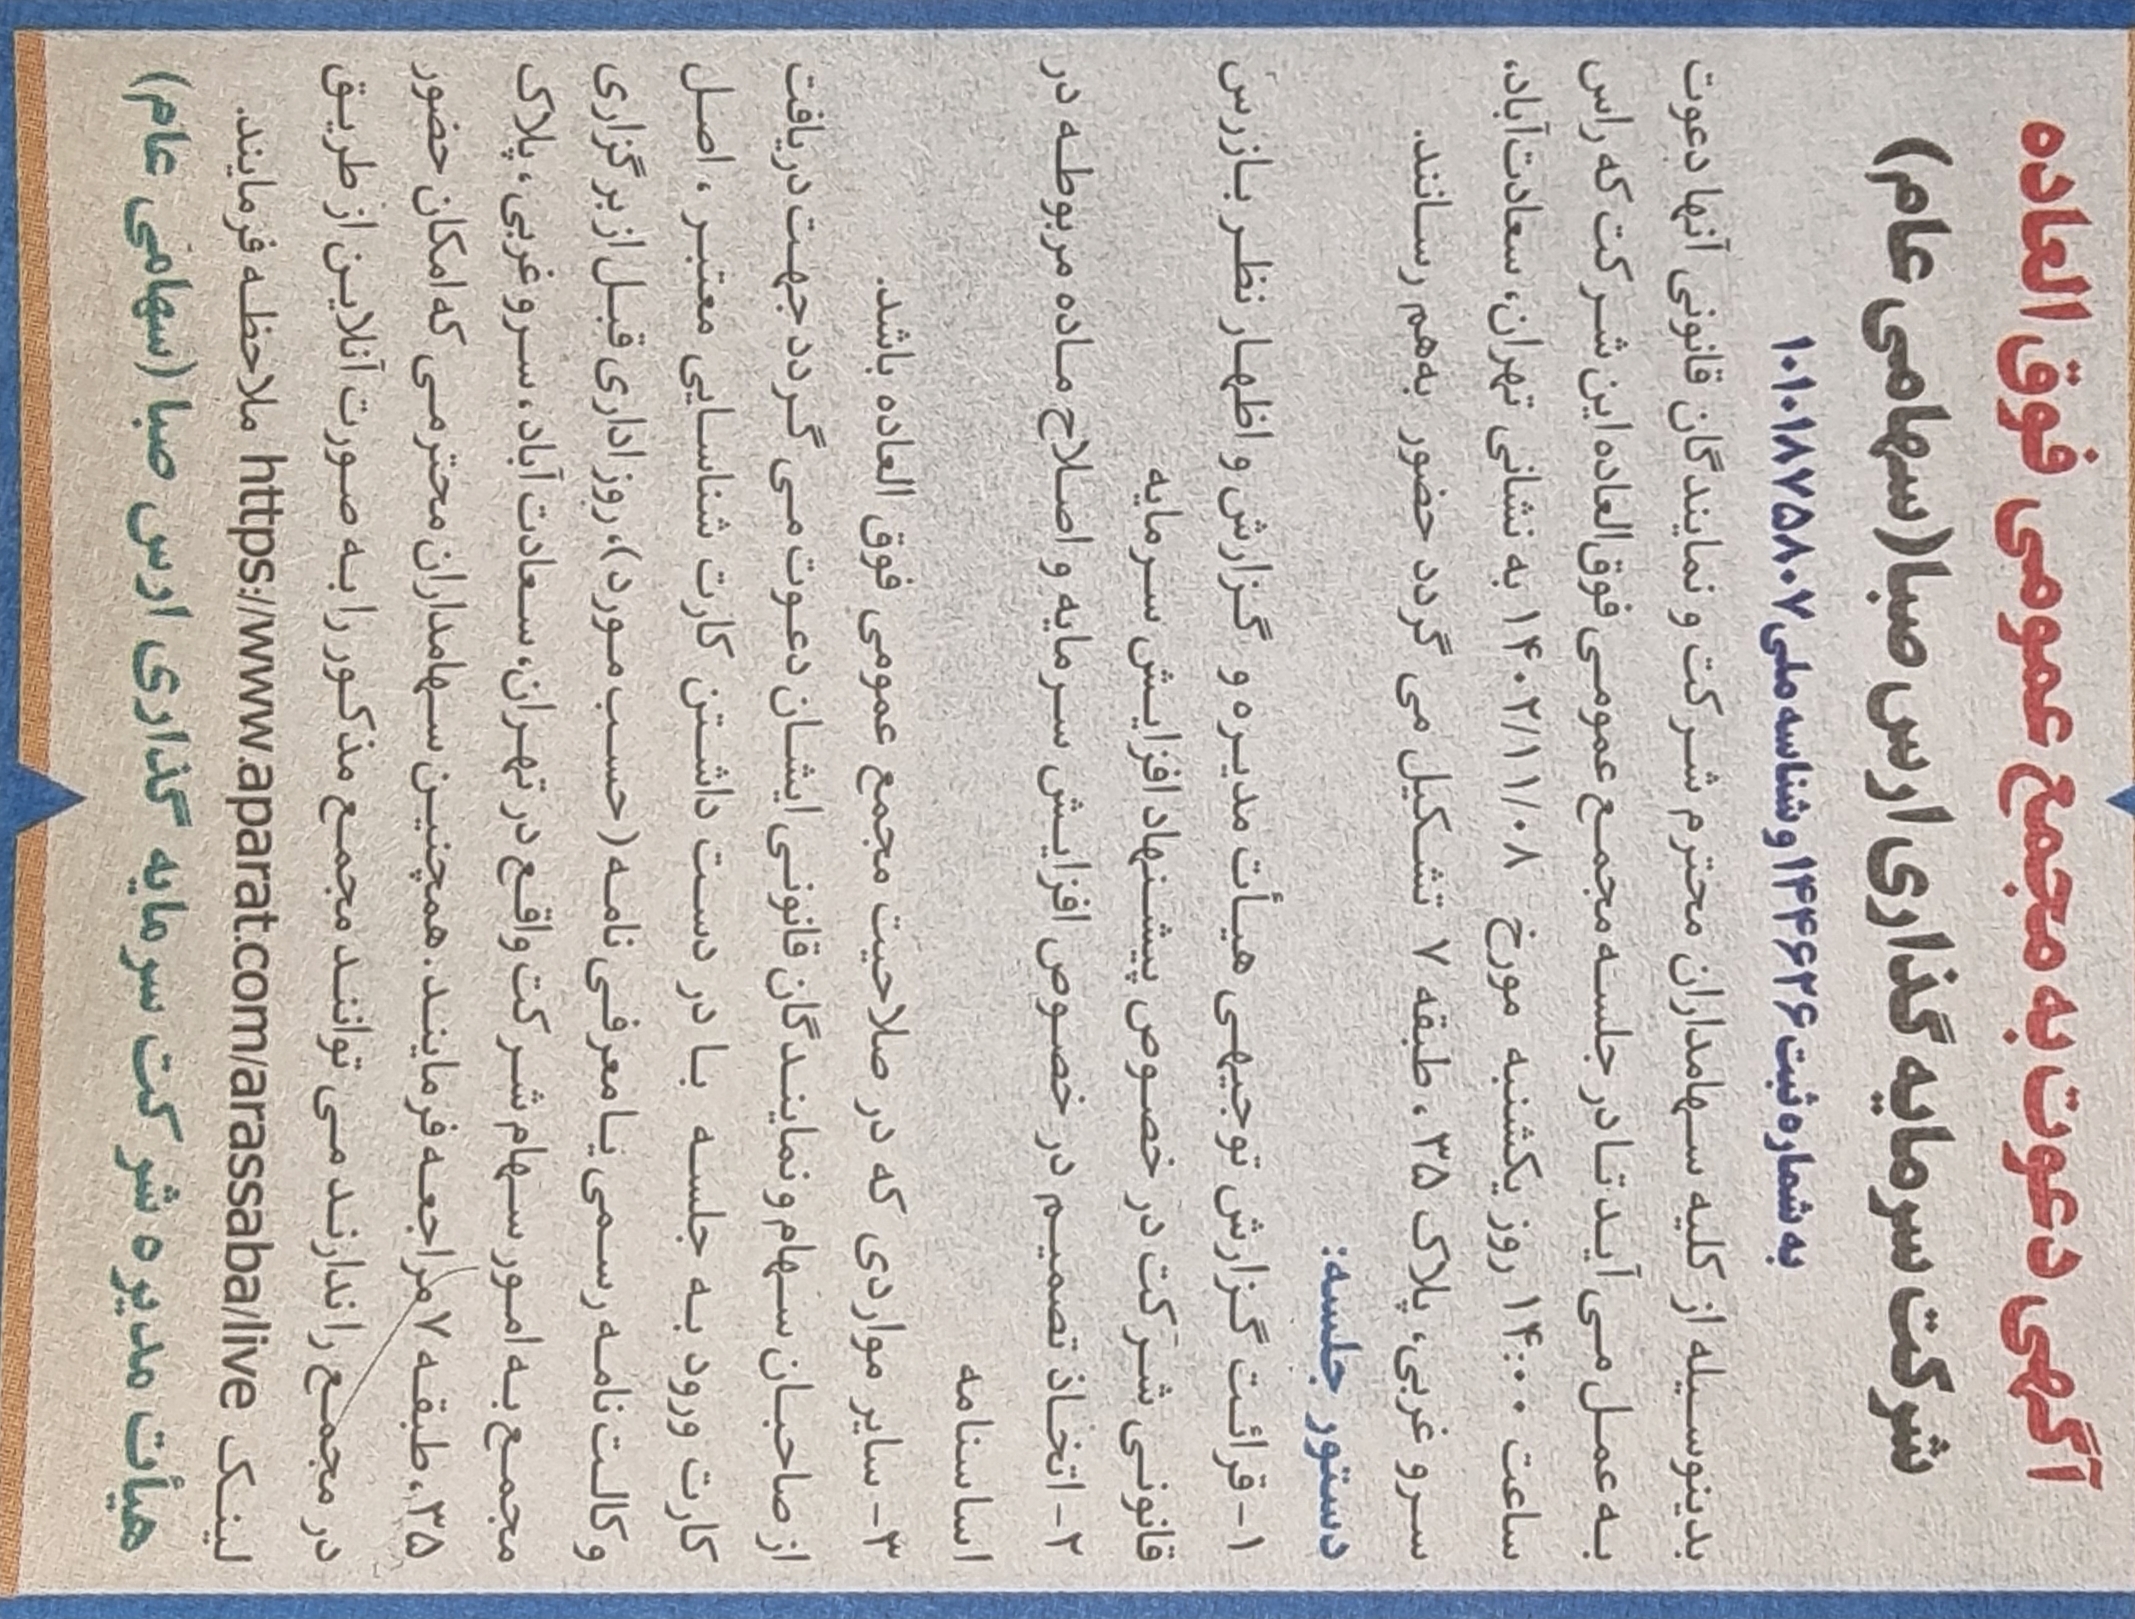 آگهی دعوت به مجمع عمومی فوق العاده
شرکت سرمایه گذاری ارس صبا (سهامی عام)
به شماره ثبت ۱۴۴۶۲۶ و شناسه ملی ۱۰۱۰۱۸۷۵۸۰۷
بدینوسیله از کلیه سهامداران محترم شرکت و نمایندگان قانونی آنها دعوت
به عمل می آید تا در جلسه مجمع عمومی فوق العاده این شرکت که راس
ساعت ۱۴:۰۰ روز یکشنبه مورخ ۱۴۰۲/۱۱/۰۸ به نشانی تهران، سعادت آباد،
سرو غربی، پلاک ۳۵ ، طبقه ۷ تشکیل می گردد حضور بهم رسانند.
دستور جلسه:
۱- قرائت گزارش توجیهی هیأت مدیره و گزارش و اظهار نظر بازرس
قانونی شرکت در خصوص پیشنهاد افزایش سرمایه
۲- اتخاذ تصمیم در خصوص افزایش سرمایه و اصلاح ماده مربوطه در
اساسنامه
۳- سایر مواردی که در صلاحیت مجمع عمومی فوق العاده باشد.
از صاحبان سهام و نمایندگان قانونی ایشان دعوت می گردد جهت دریافت
کارت ورود به جلسه با در دست داشتن کارت شناسایی معتبر ، اصل
وکالت نامه رسمی یا معرفی نامه (حسب مورد)، روز اداری قبل از برگزاری
مجمع به امور سهام شرکت واقع در تهران، سعادت آباد، سرو غربی، پلاک
۳۵، طبقه ۷ مراجعه فرمایند. همچنین سهامداران محترمی که امکان حضور
در مجمع را ندارند می توانند مجمع مذکور را به صورت آنلاین از طریق
لینک https://www.aparat.com/arassaba/live ملاحظه فرمایند.
هیأت مدیره شرکت سرمایه گذاری ارس صبا (سهامی عام)